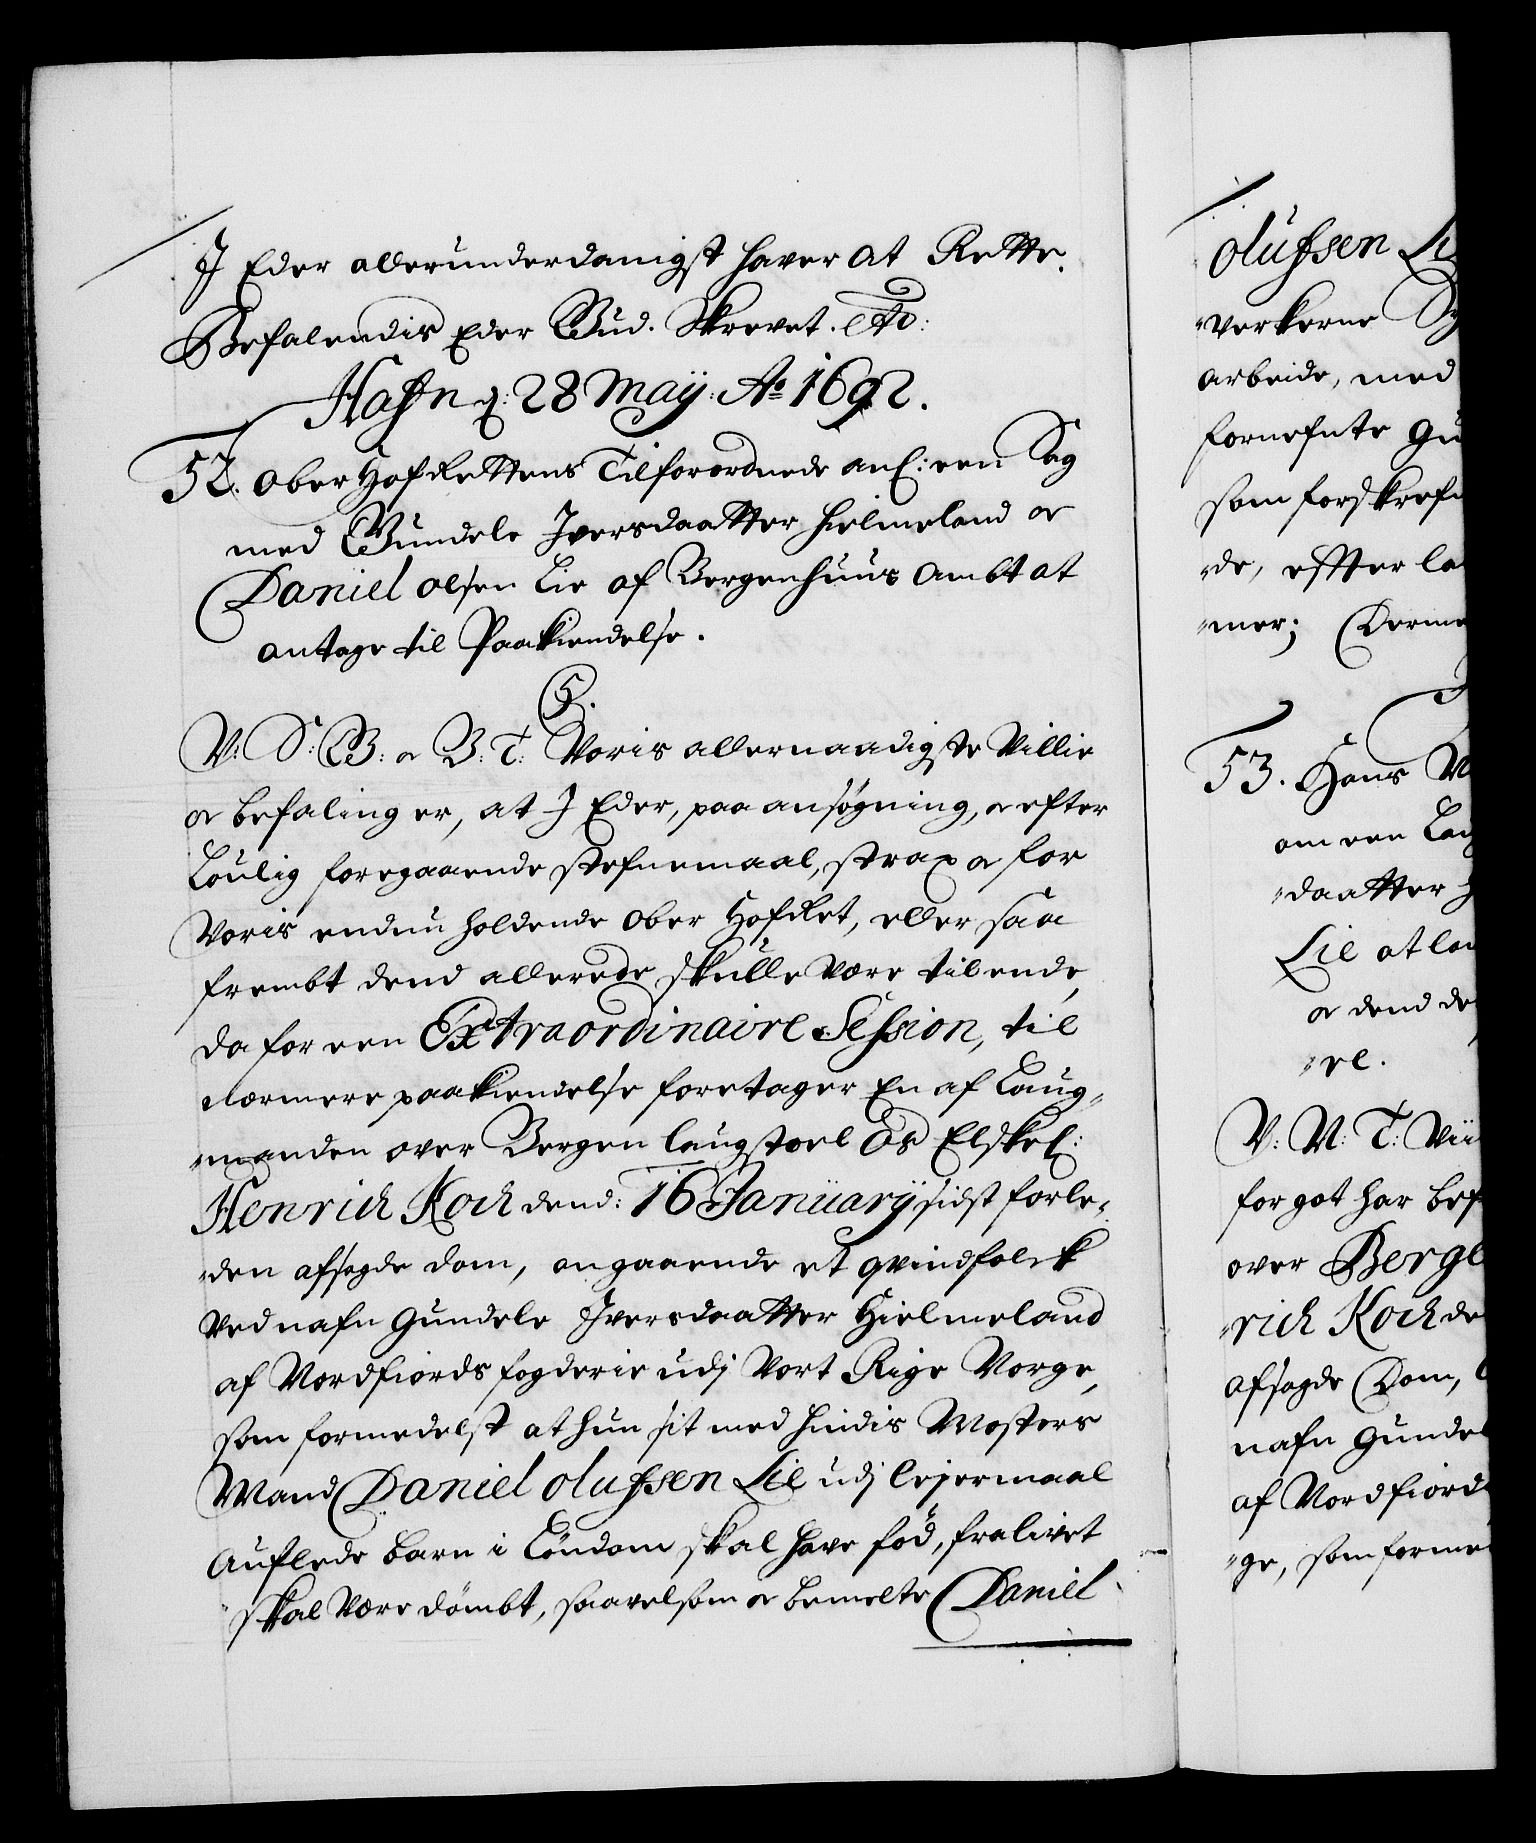 J Eder allerunderdanigst haver at Rette.
Befalendis Eder Gud. Skrevet. etc:
Hafn d: 28 Maÿ: Ao 1692.
52. Ober HofRettens Tilforordnede anl: een Sag
med Gundele Jversdaatter Hielmeland oc
Daniel Olsen Lie af Bergenhuus Ambt at
antage til Paakiendelse.
C5.
V: S: G: oc G: T: Voris allernaadigste Villie
oc befaling er, at J Eder, paa ansøgning, oc efter
Loulig foregaaende stefnemaal, strax oc for
Voris endnu holdende Ober HofRet, eller saa
frembt dend allerede skulle være til ende,
da for een Extraordinaire Session, til
nærmere paakiendelse foretager En af Laug-
manden over Bergen laugstoel Os Elskel:
Henrich Koch dend: 16 Januarÿ sidst forle-
den afsagde dom, angaaende et qvindfolck
ved nafn Gundele Jversdaatter Hielmeland
af Nordfiords fogderie udj Vort Rige Norge,
som formedelst at hun sit med hindis Mosters
Mand Daniel Olufsen Lie udj lejermaal
Auflede barn i Löndom skal have fød, fra livet
skal være dömbt, saavelsom oc bemelte Daniel
Olufsen Li
verkerne
arbeide, med
fornefnte Gu
som forskrefn
de, effter la
mer; Derme
53. Hans
om een Lau
daatter H
Lie at la
oc dend de
re.
V: N: T: Vii
for got har bef
over Berge
rich Koch de
afsagde Dom,
nafn Gundel
af Nordfiord
ge, som forme